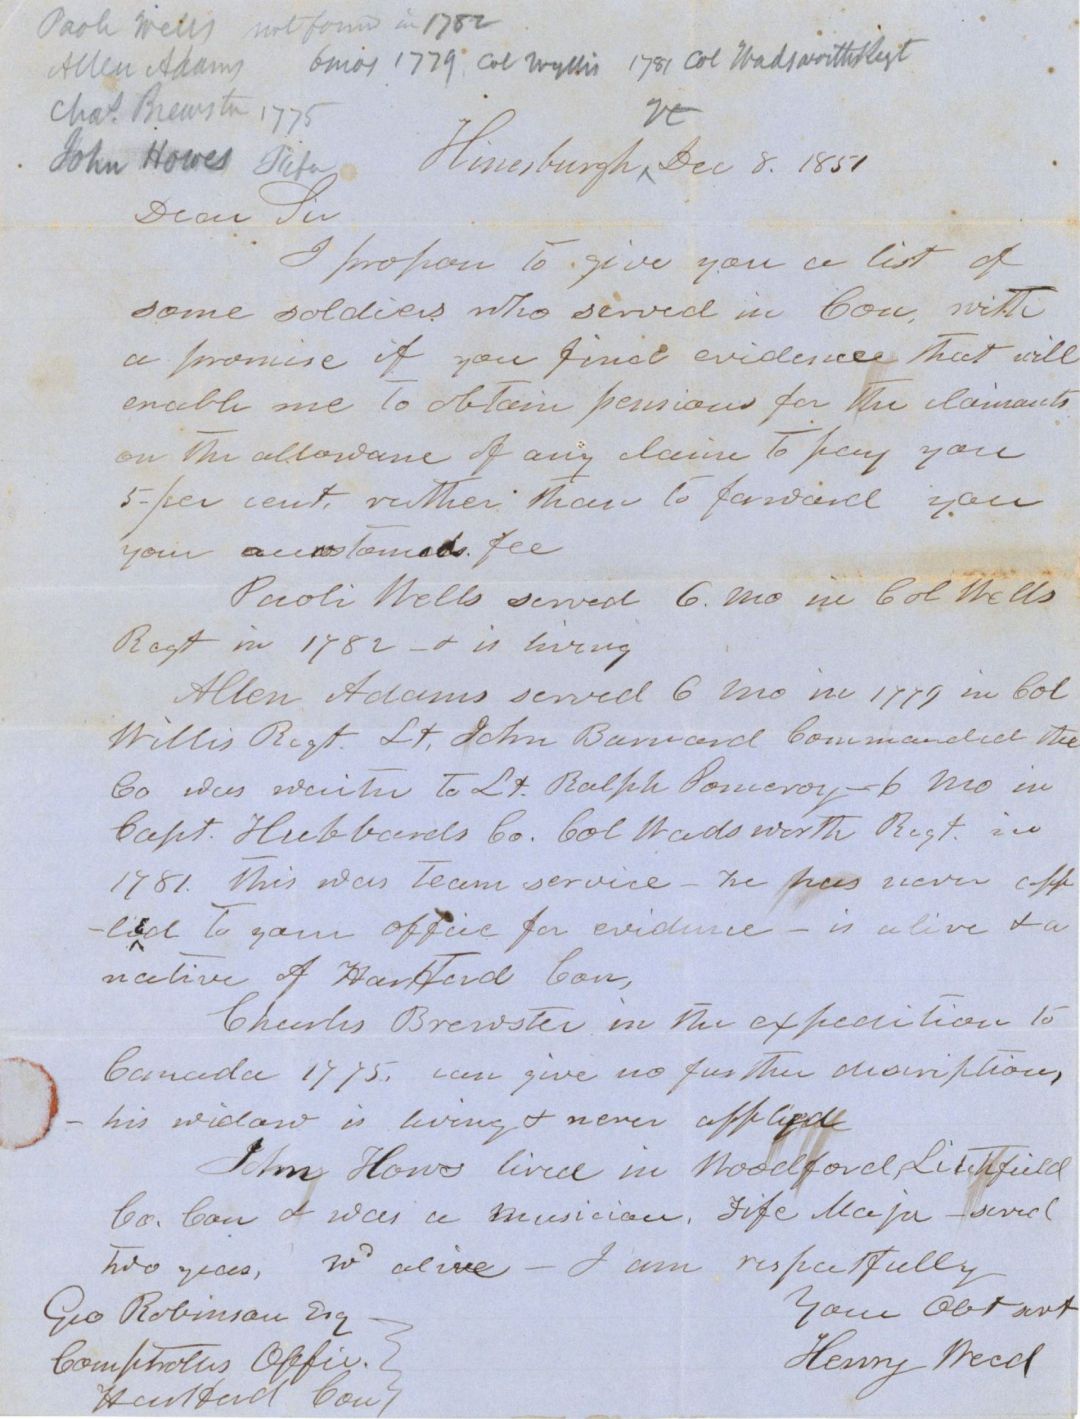 Paoli Wells not found in 1782
Allen Adams 6mos 1779 Col Wyllis 1781 Col Wadsworths Regt
Chas. Brewster 1775
John Howes Fifer
Vt
Hinesburgh, Dec 8. 1851
Dear Sir
I propose to give you a list of
some soldiers who served in Con, with
a promise if you find evidence that will
enable me to obtain pensions for the claimants
on the allowance of any claim to pay you
5 per cent, ruther than to forward you
your accustomed fee
Paoli Wells served 6. Mo in Col Wells
Regt in 1782 – & is living
Allen Adams served 6 Mo in 1779 in Col
Willis Regt. Lt. John Barnard Commanded the
Co was waiter to Lt. Ralph Pomeroy – 6 Mo in
Capt. Hubbards Co. Col Wadsworth Regt. in
1781. this was team service – he has never app
-lied to your office for evidence – is alive & a
native of Hartford Con,
Charles Brewster in the expedition to
Canada 1775. can give no further description,
– his widow is living & never applied
John Hows lived in Woodford, Litchfield
Co. Con & was a musician, Fife Major – served
two years, wd alive – I am respectfully
Your Obt svt
Geo Robinson Esq
Comptrolers Office.
Henry Weed
Hartford Con